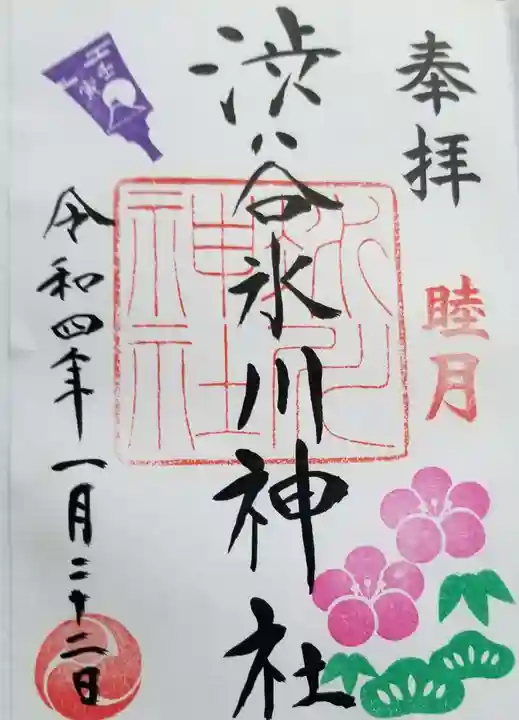 奉拝
睦月
渋谷氷川神社
氷川神社
令和四年一月二十二日